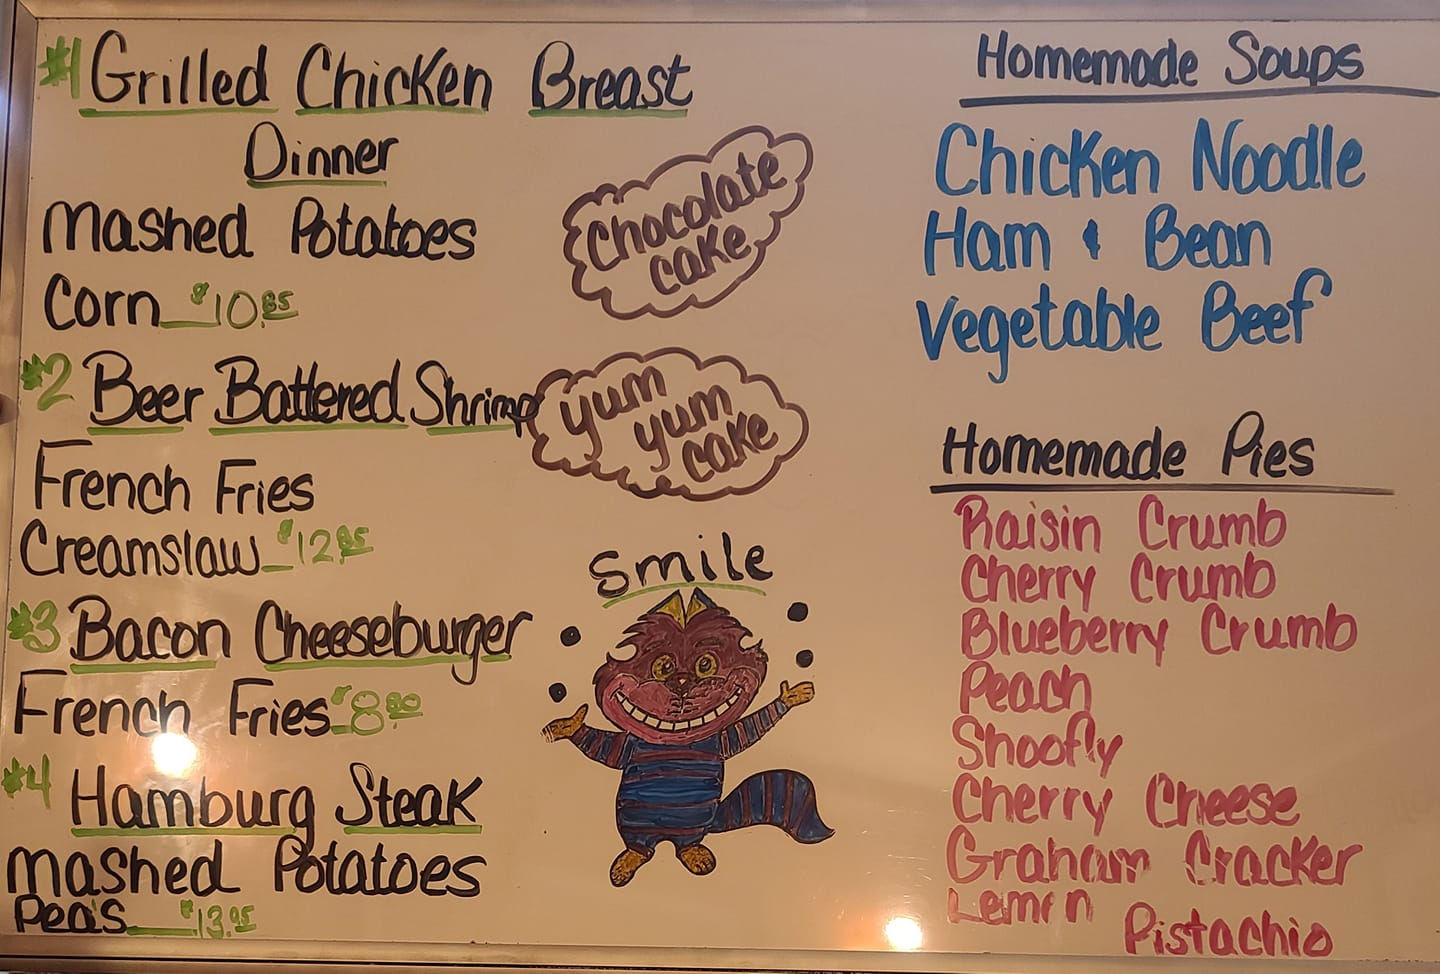 #1 Grilled Chicken Breast
Dinner
Mashed Potatoes
Corn $10.85
#2 Beer Battered Shrimp
French Fries
Creamslaw $12.85
#3 Bacon Cheeseburger
French Fries $8.80
#4 Hamburg Steak
Mashed Potatoes
Pea's $13.95
Chocolate
cake
yum
yum
cake
Smile
Homemade Soups
Chicken Noodle
Ham & Bean
Vegetable Beef
Homemade Pies
Raisin Crumb
Cherry Crumb
Blueberry Crumb
Peach
Shoofly
Cherry Cheese
Graham Cracker
Lemon
Pistachio